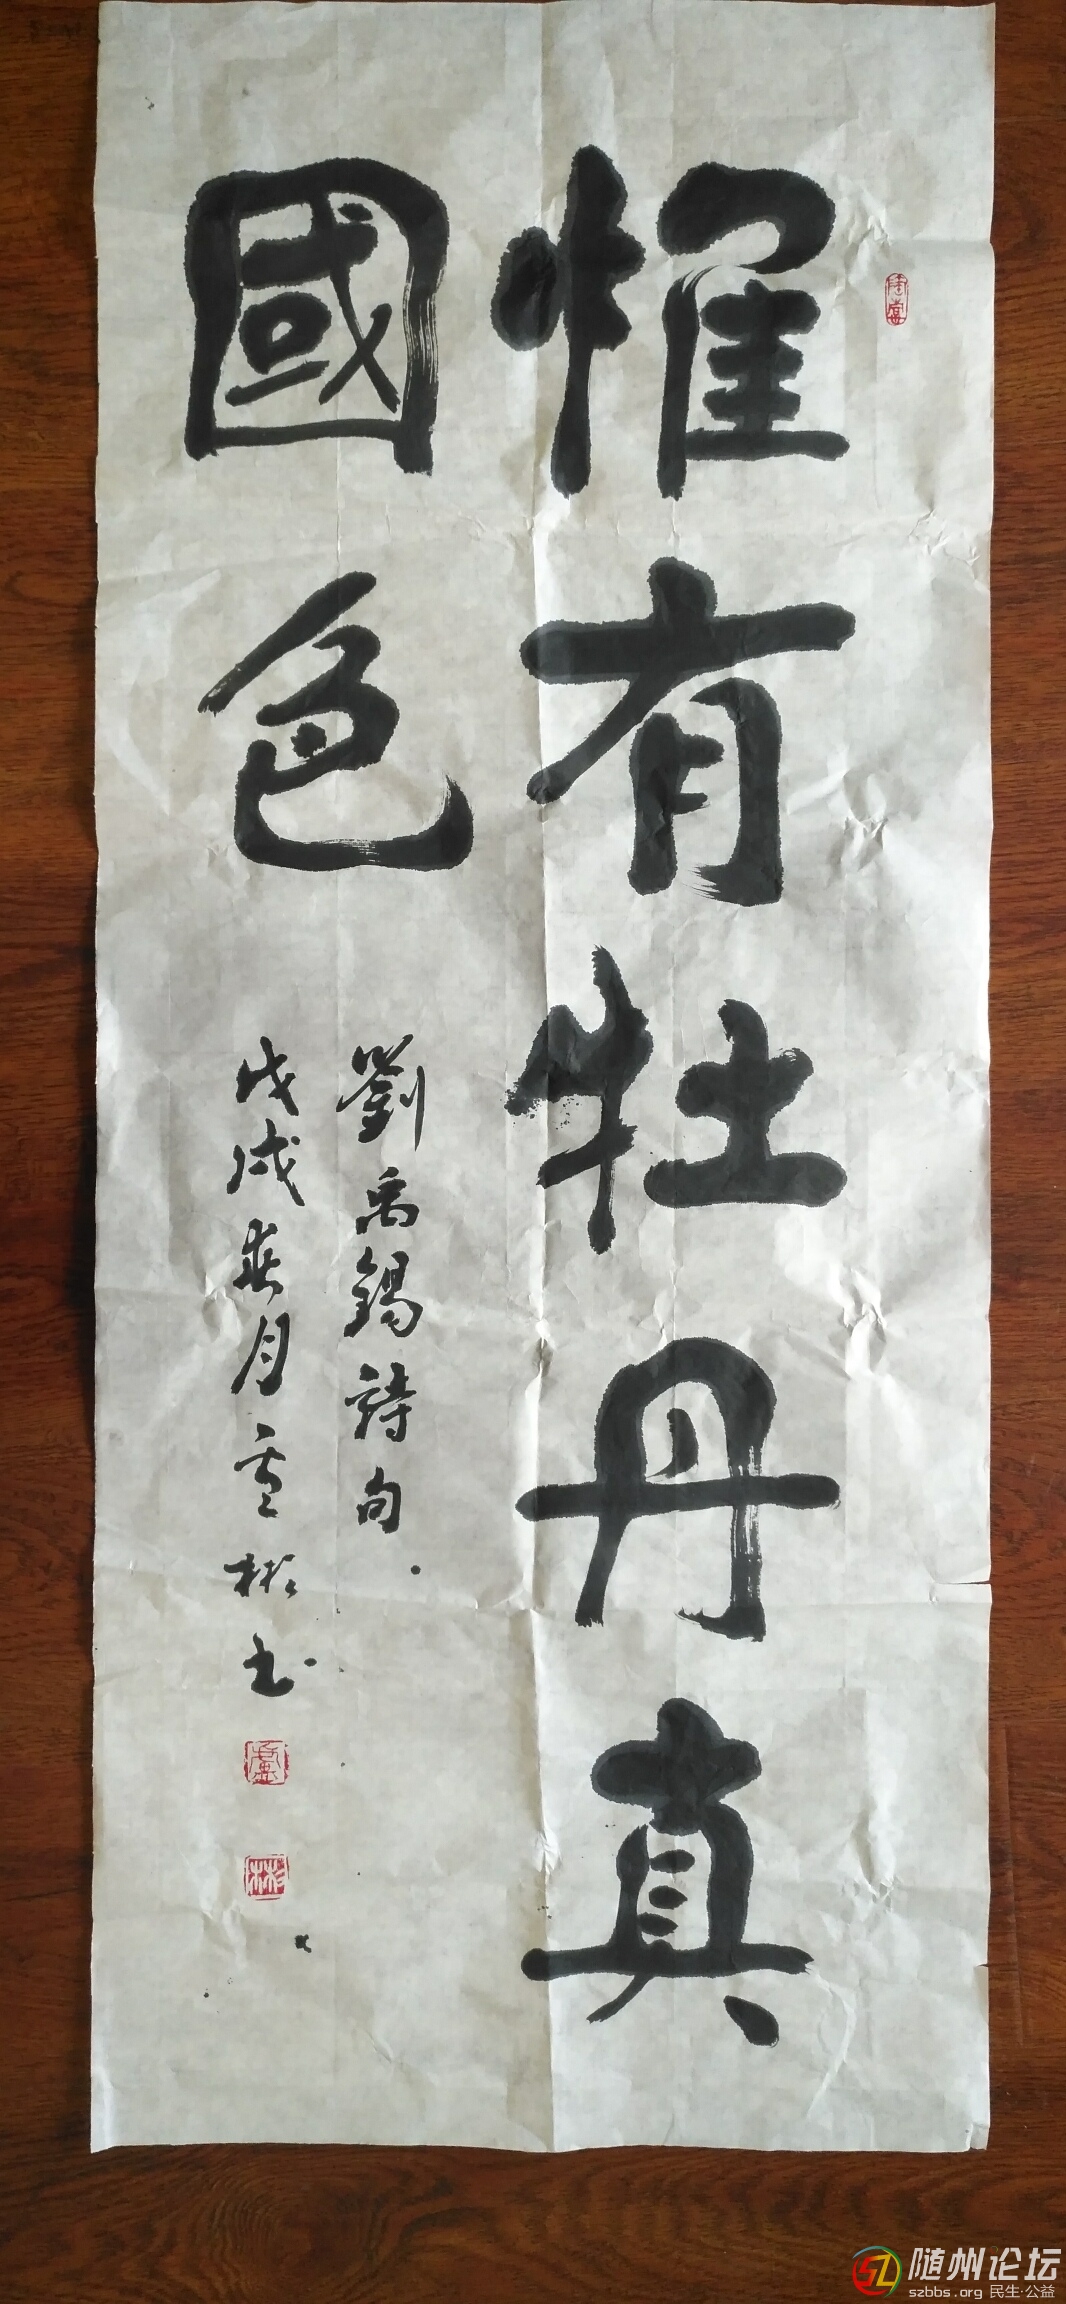 惟有牡丹真
國色
劉禹錫詩句
戊戌春月雲彬书
盧
彬
随州论坛
szbbs.org 民生·公益